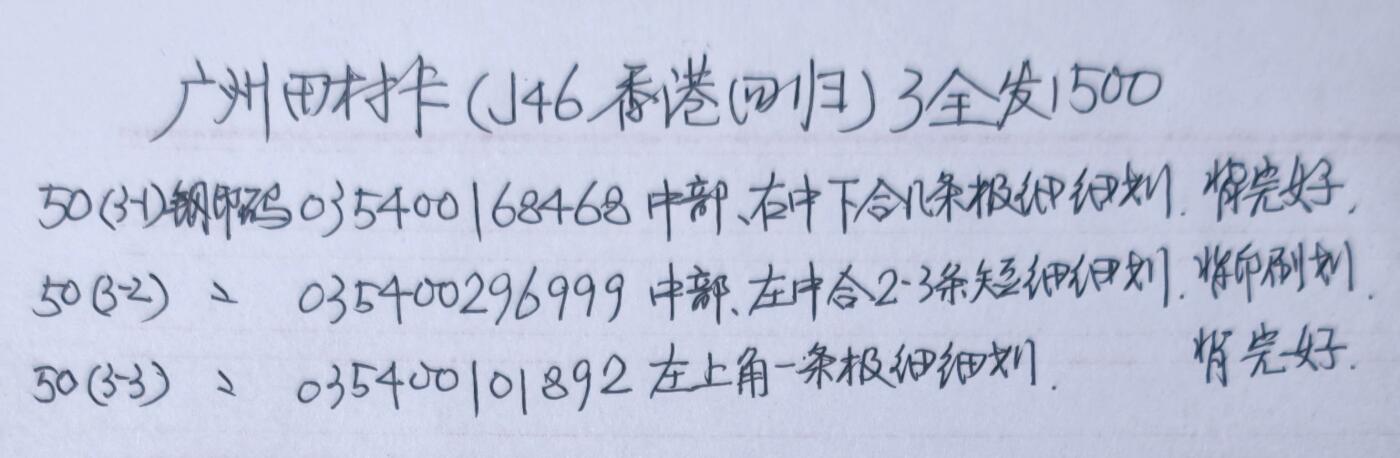 广州田村卡(J46香港回归)3全发1500
50(3-1)钢印码035400168468中部、右中下合几条极细细划.背完好.
50(3-2) 〃 035400296999中部、左中合2-3条短细细划.背印刷划.
50(3-3) 〃 035400101892左上角一条极细细划. 背完好.